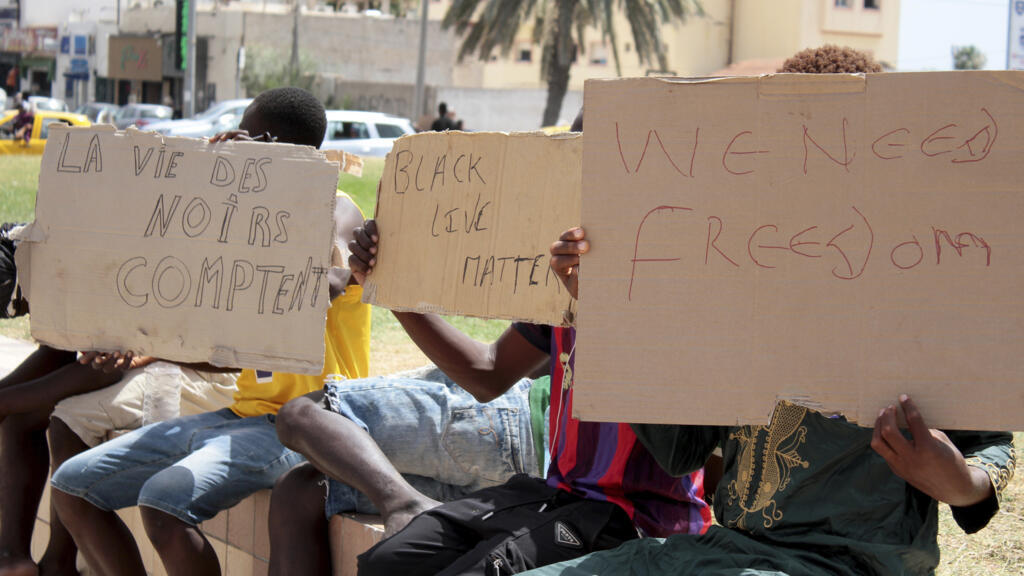 LA VIE DES
NOIRS
COMPTENT
BLACK
LIVE
MATTE
WE NEED
FREEDOM